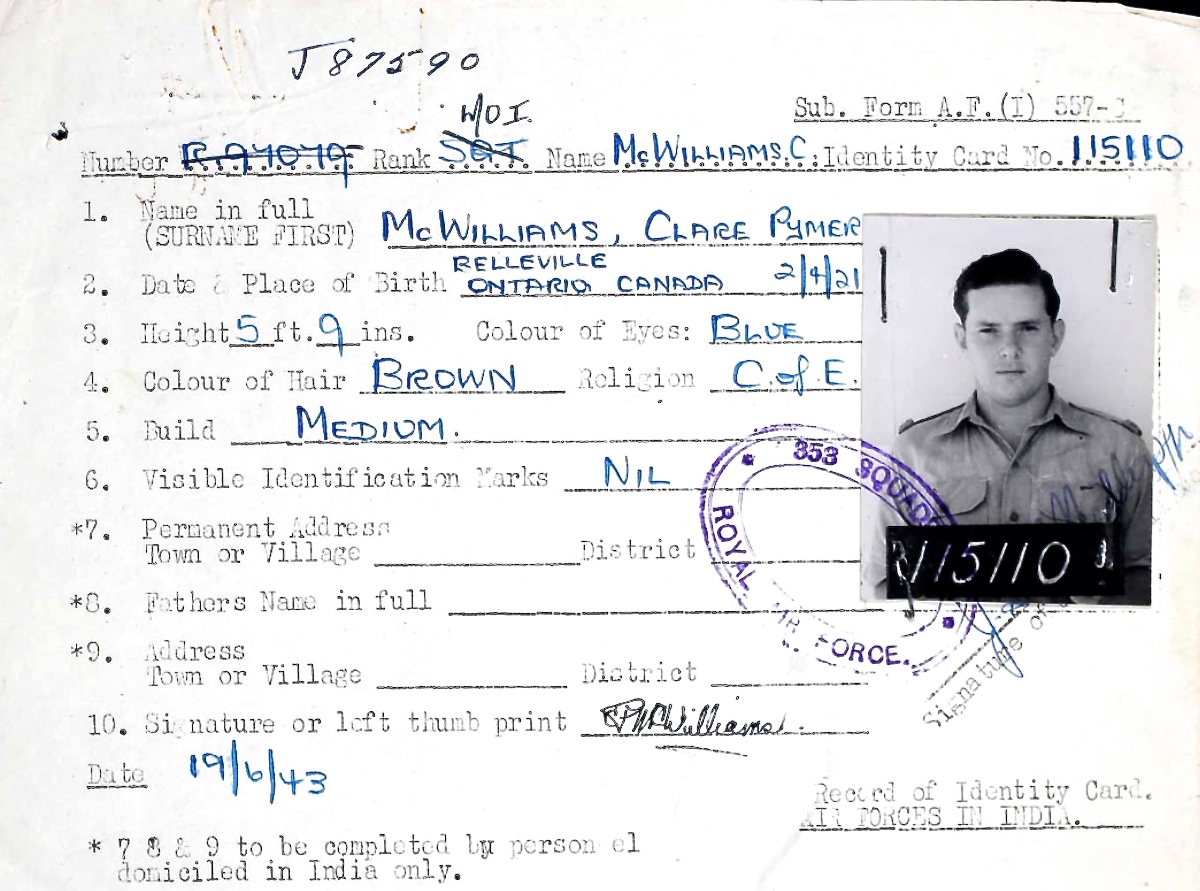 J87590
W/O I.
Sub. Form A.F.(I) 557-
Number R.97079. Rank SGT. Name McWILLIAMS.C. Identity Card No. 115110
1. Name in full
(SURNAME FIRST) McWILLIAMS, CLARE PYMER
BELLEVILLE
2. Date & Place of Birth ONTARIO CANADA 2/4/21
3. Height 5 ft. 9 ins. Colour of Eyes: BLUE
4. Colour of Hair BROWN Religion C. of E.
5. Build MEDIUM.
6. Visible Identification Marks NIL
*7. Permanent Address
Town or Village District
*8. Fathers Name in full
*9. Address
Town or Village District
10. Signature or left thumb print CPMcWilliams.
Date 19/6/43
353 SQUAD
ROYAL AIR FORCE.
115110
Signature of
Record of Identity Card.
AIR FORCES IN INDIA.
* 7 8 & 9 to be completed by person el
domiciled in India only.